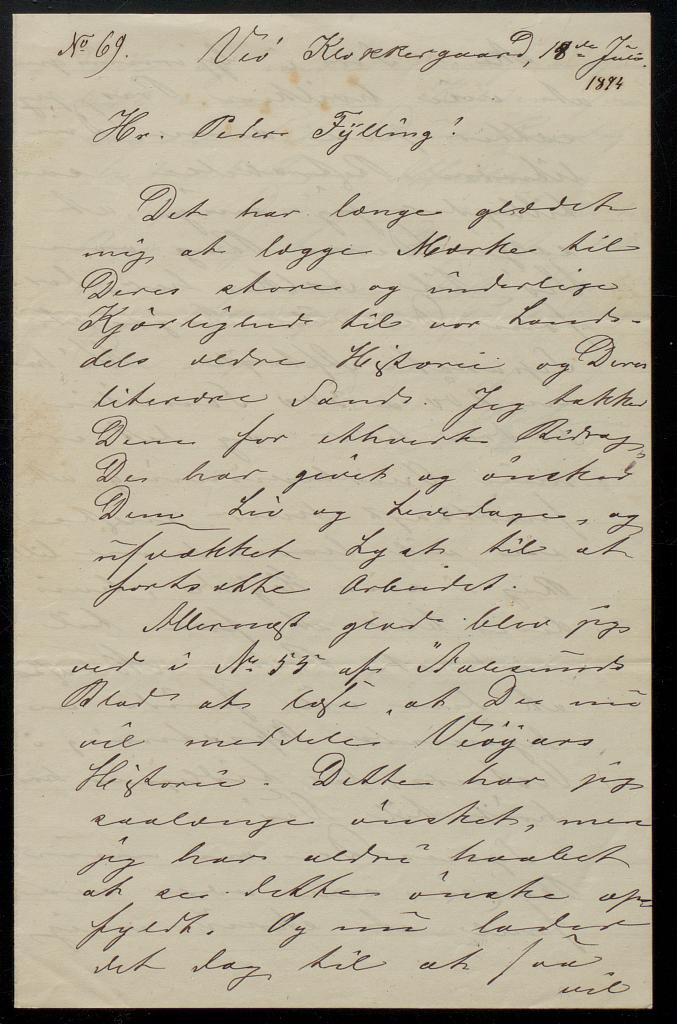 No 69. Veø Klokkergaard, 18de Juli
1894
Hr. Peder Fylling!
Det har længe glædet
mig at lægge Mærke til
Deres store og inderlige
Kjærlighed til vor Lands-
dels ældre Historie og Deres
literære Sands. Jeg takker
Dem for ethvert Bidrag,
De har givet og ønsker
Dem Liv og Levedage, og
usvækket Lyst til at
fortsætte Arbeidet.
Allermest glad blev jeg
ved i No 55 af "Aalesunds
Blad" at læse, at De nu
vil meddele Veøyars
Historie. Dette har jeg
saalænge ønsket, men
jeg har aldri haabet
at se dette ønske op-
fyldt. Og nu lader
det dog til at saa
vil